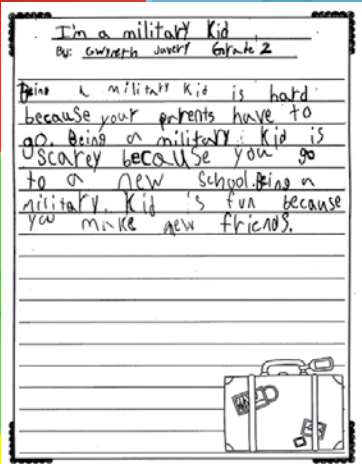 I'm a military Kid
By: Gwyneth Javery Grade 2
Being a military Kid is hard
because your parents have to
go. Being a military Kid is
scarey because you go
to a new school. Being a
military Kid is fun because
you make new friends.